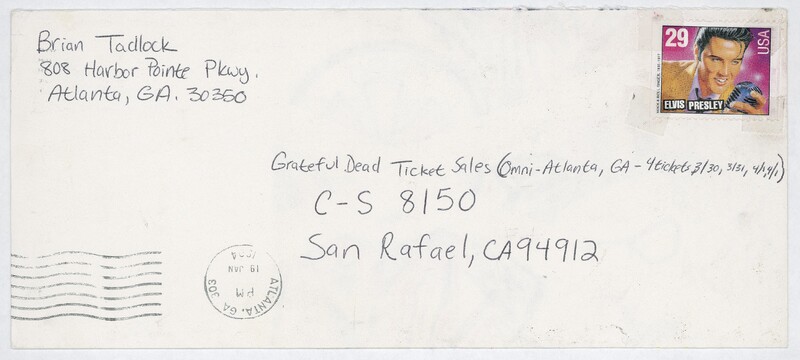 Brian Tadlock
808 Harbor Pointe Pkwy.
Atlanta, GA. 30350
29
USA
ELVIS PRESLEY
Grateful Dead Ticket Sales (Omni-Atlanta, GA - 4 tickets 3/30, 3/31, 4/1)
C-S 8150
San Rafael, CA 94912
ATLANTA, GA 303
PM
19 JAN
1994